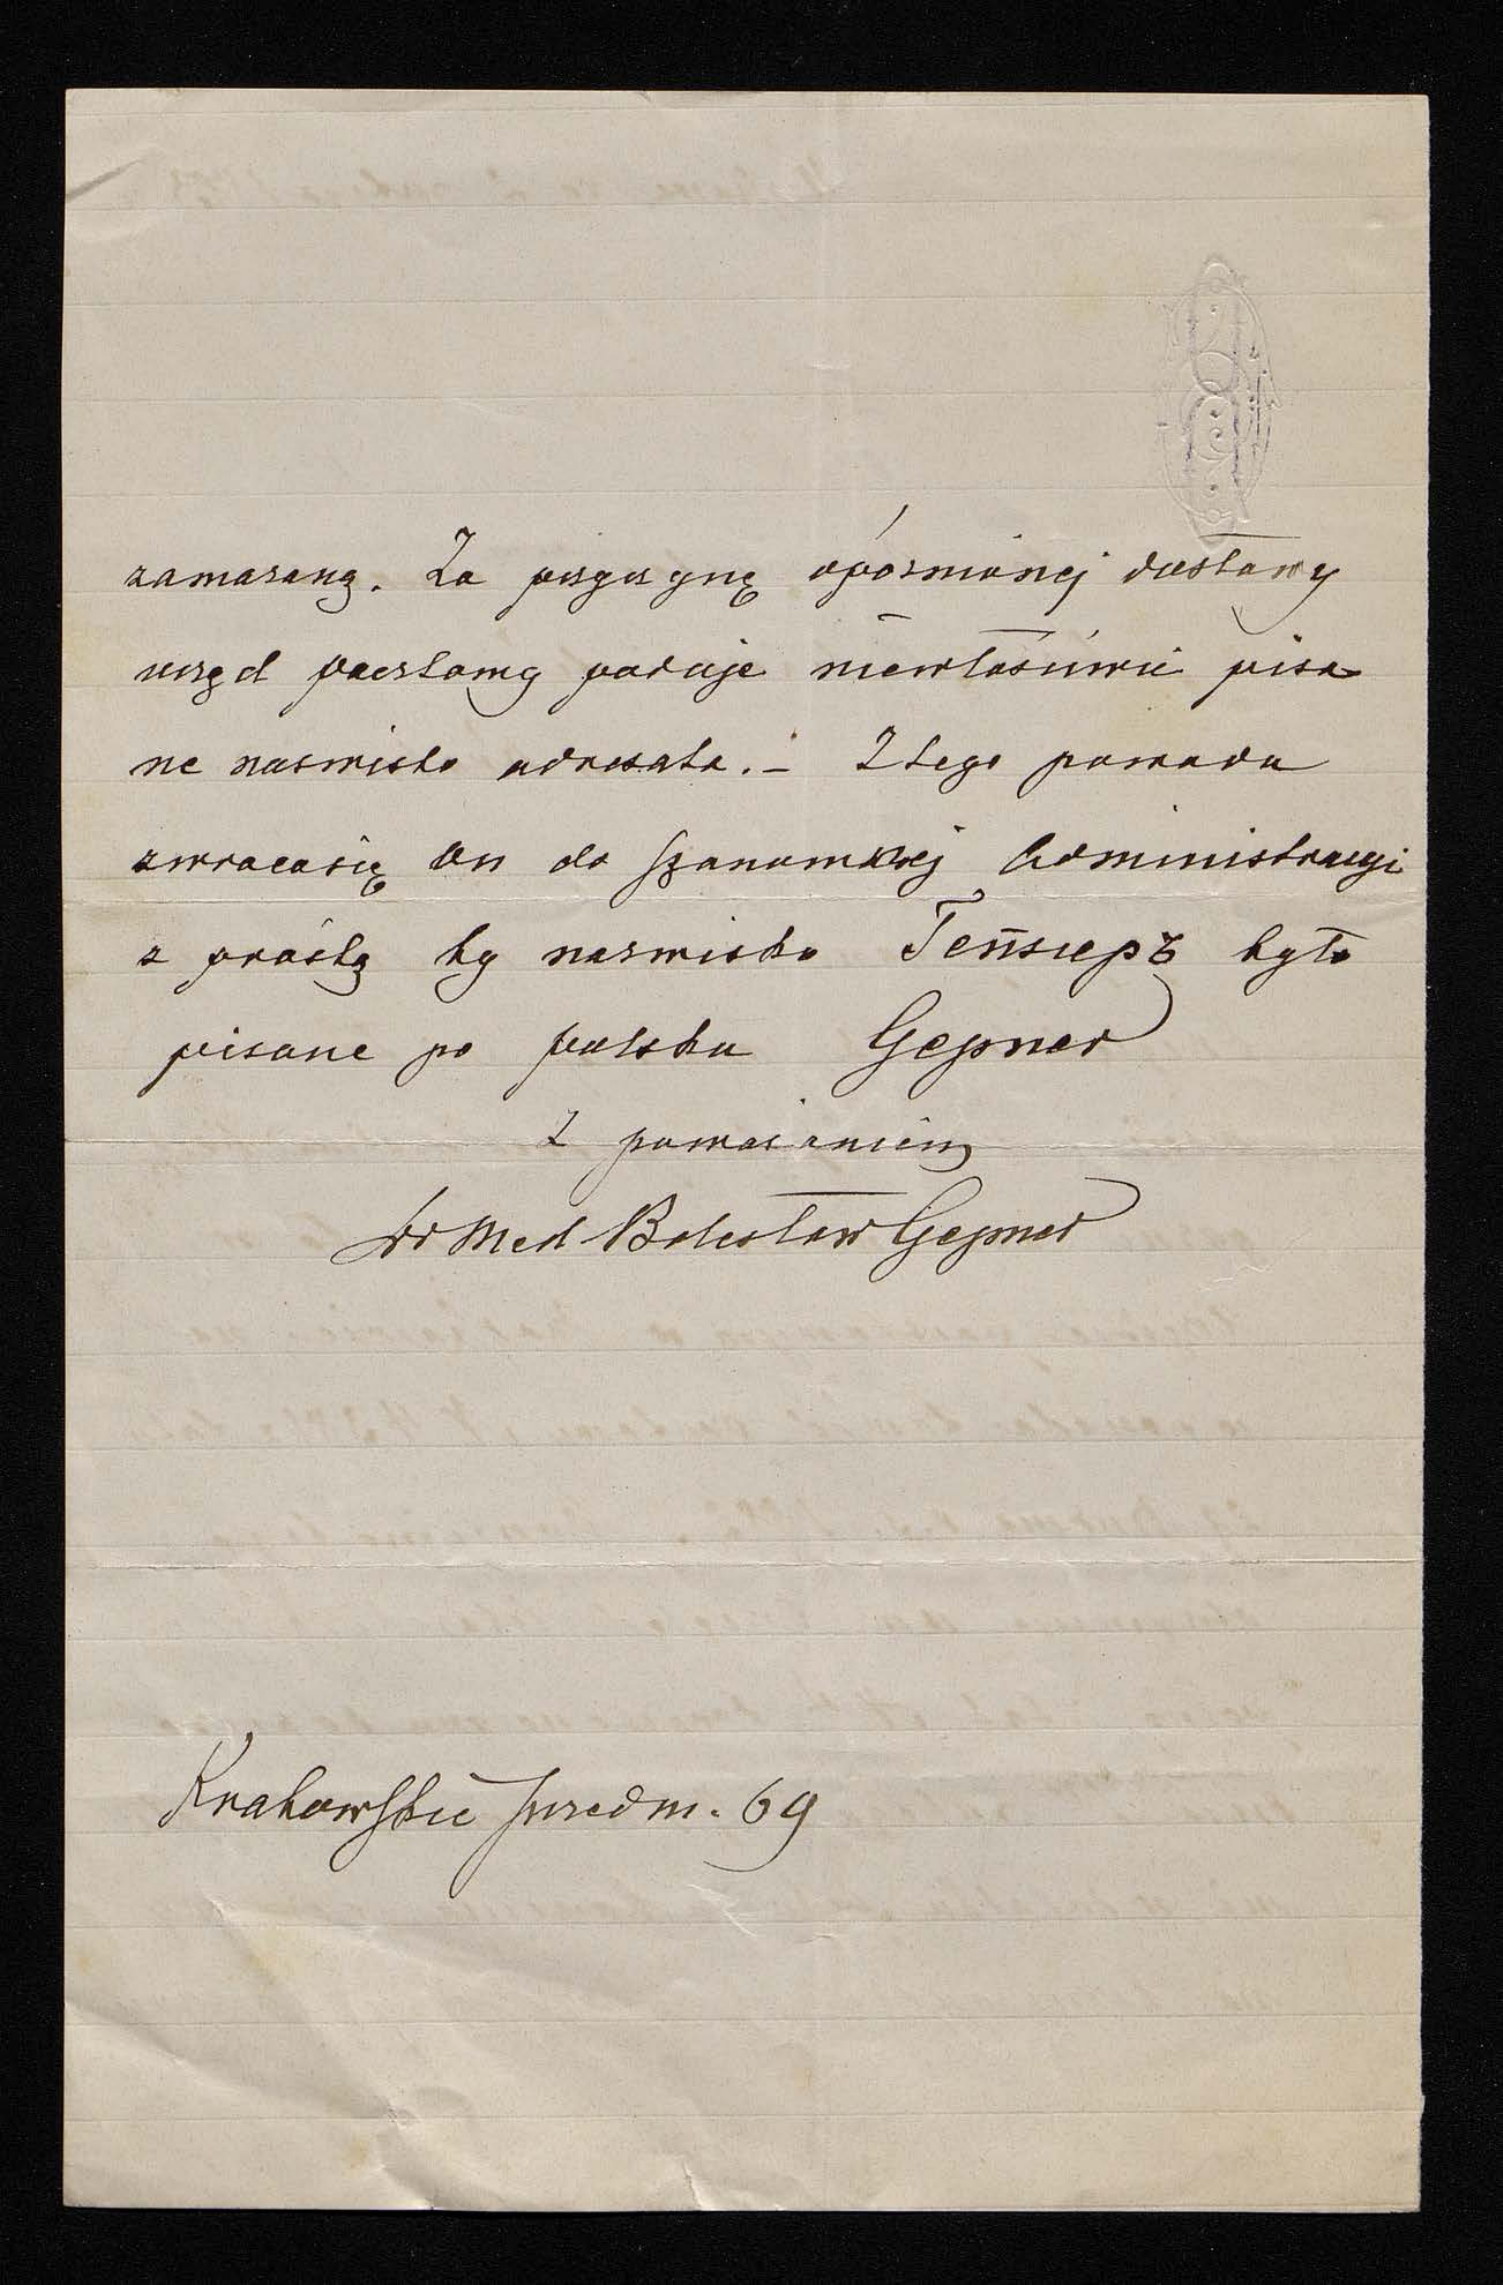 zamazaną. Za przyczynę opóźnionej dostawy
urząd pocztowy podaje niewłaściwie pisa
ne nazwisko adresata. – Z tego powodu
zwraca się on do Szanownej Administracyi
z prośbą by nazwisko Гепнеръ było
pisane po polsku Gepner
Z poważaniem
Dr Med Bolesław Gepner
Krakowskie Przedm. 69